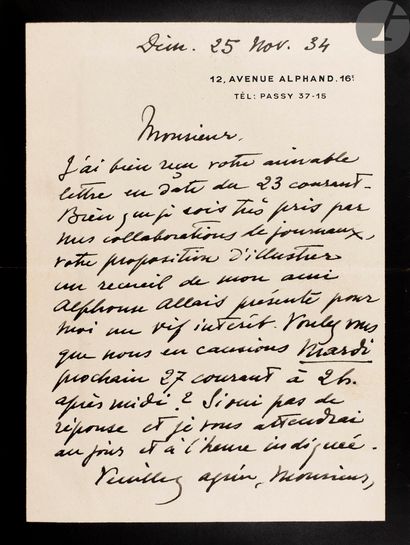 Dim. 25 Nov. 34
12, AVENUE ALPHAND. 16ᵉ
TÉL: PASSY 37-15
Monsieur,
J'ai bien reçu votre aimable
lettre en date du 23 courant.
Bien que je sois très pris par
mes collaborations de journaux,
votre proposition d'illustrer
un recueil de mon ami
Alphonse Allais présente pour
moi un vif intérêt. Voulez vous
que nous en causions Mardi
prochain 27 courant à 2h.
après midi? Si oui pas de
réponse et je vous attendrai
au jour et à l'heure indiquée.
Veuillez agréer, Monsieur,